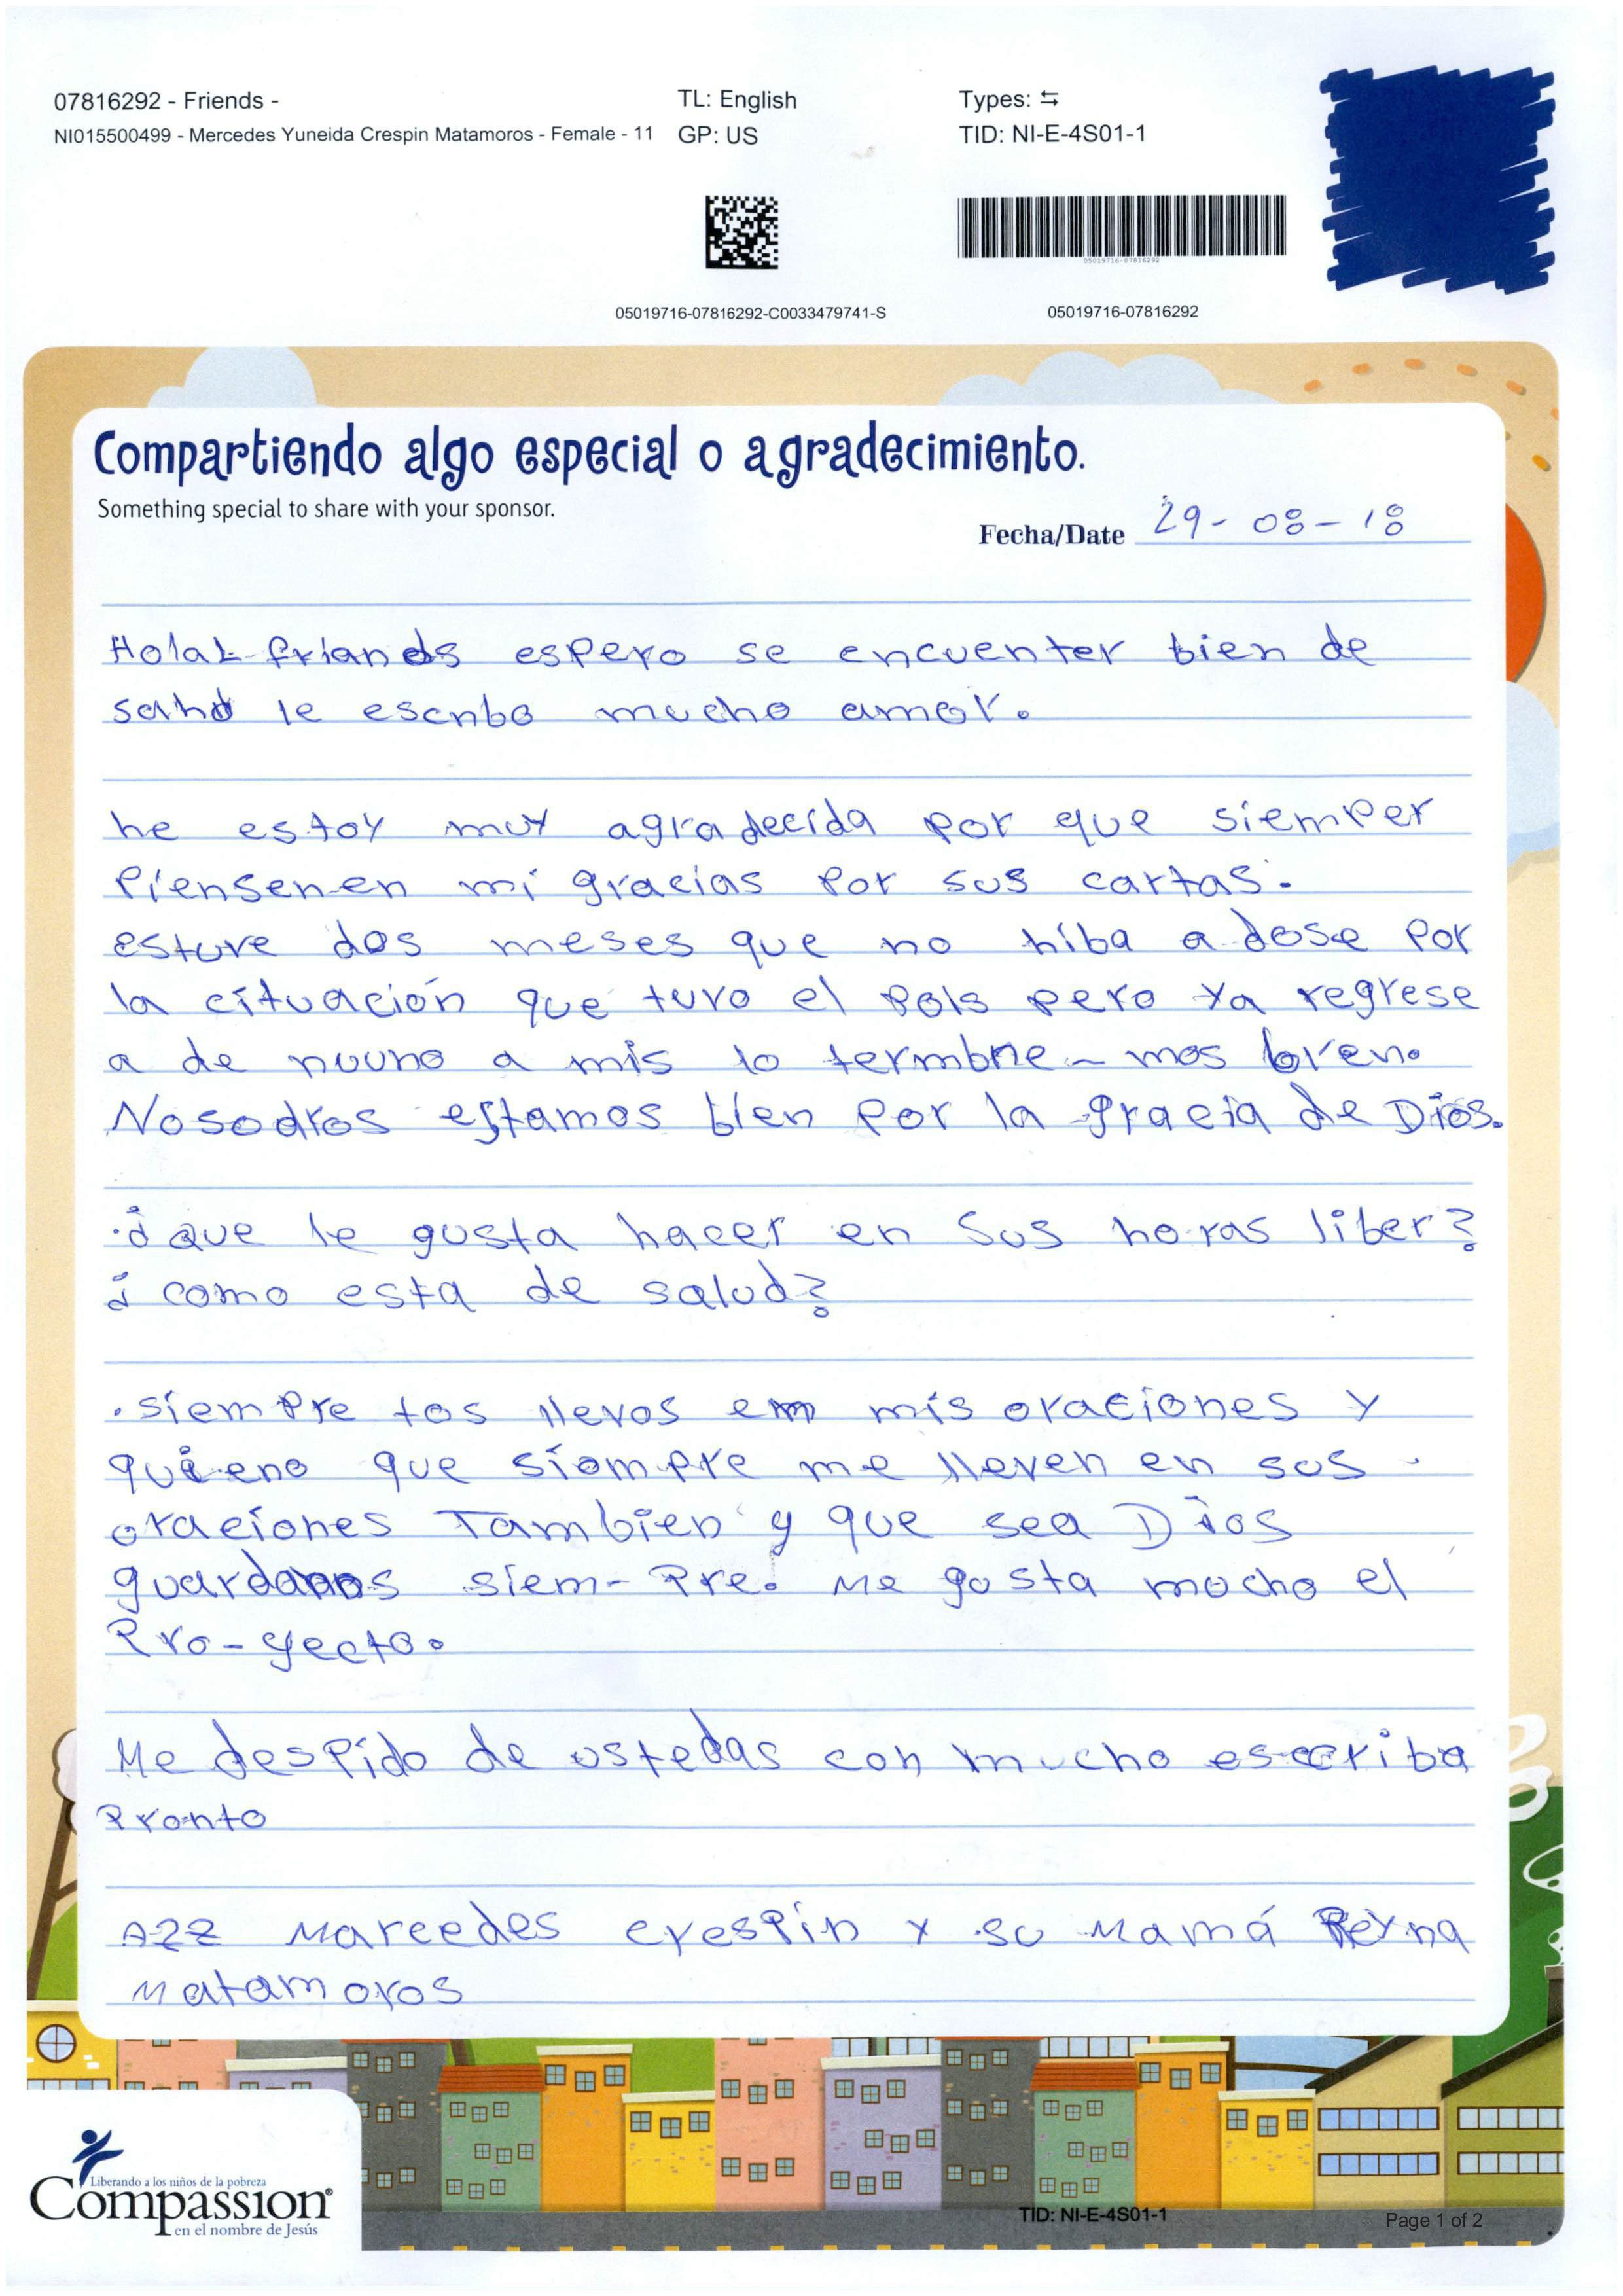 07816292 - Friends -
TL: English
Types: ⇆
NI015500499 - Mercedes Yuneida Crespin Matamoros - Female - 11
GP: US
TID: NI-E-4S01-1
05019716-07816292
05019716-07816292-C0033479741-S
05019716-07816292
Compartiendo algo especial o agradecimiento.
Something special to share with your sponsor.
Fecha/Date 29-08-18
espero se encuenter bien de
le escribo mucho amor.
he estoy muy agradecida por que siemper
Piensen en mi gracias Por sus cartas.
esture dos meses que no hiba a dose Por
la cituación que tuvo el Pais pero ya regrese
a de a mis lo
Nosodros estamos bien Por la gracia de Dios.
¿que le gusta hacer en sus horas liber?
¿como esta de salud?
. siempre tos llevos em mis oraciones y
que siempre me lleven en sus
oraciones Tambien y que sea Dios
siem-Pre. Me gusta mucho el
Pro-yecto.
Me despido de ustedas con mucho escriba
Pronto
Marcedes crespin y su Mamá Reyna
Matamoros
Liberando a los niños de la pobreza
Compassion®
en el nombre de Jesús
TID: NI-E-4S01-1
Page 1 of 2